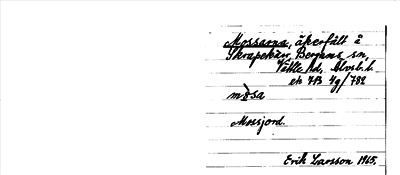 Mossarna, åkerfält å
Skrapekärr, Bergums sn,
Vättle hd, Älvsb. l.
ek 7B 4g/782
mosa
Mossjord.
Erik Larsson 1965.